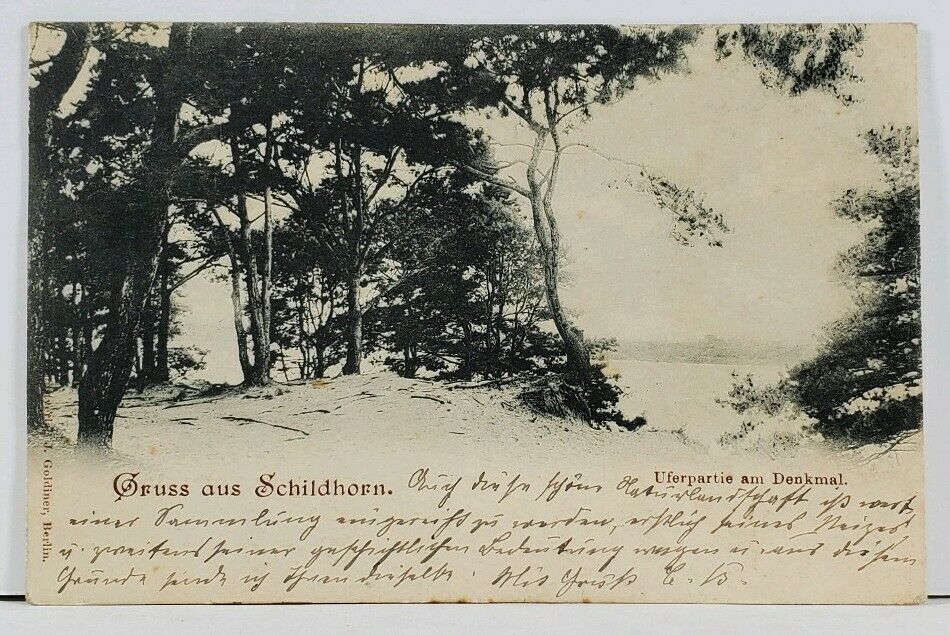 Gruss aus Schildhorn.
Uferpartie am Denkmal.
Auch diese schöne Naturlandschaft ist wert
einer Sammlung eingereicht zu werden, erstlich seines Reizes
u. zweitens seiner geschichtlichen Bedeutung wegen u. aus diesem
Grunde sende ich Ihnen dieselbe. Mit Gruss E. B.
J. Goldiner, Berlin.